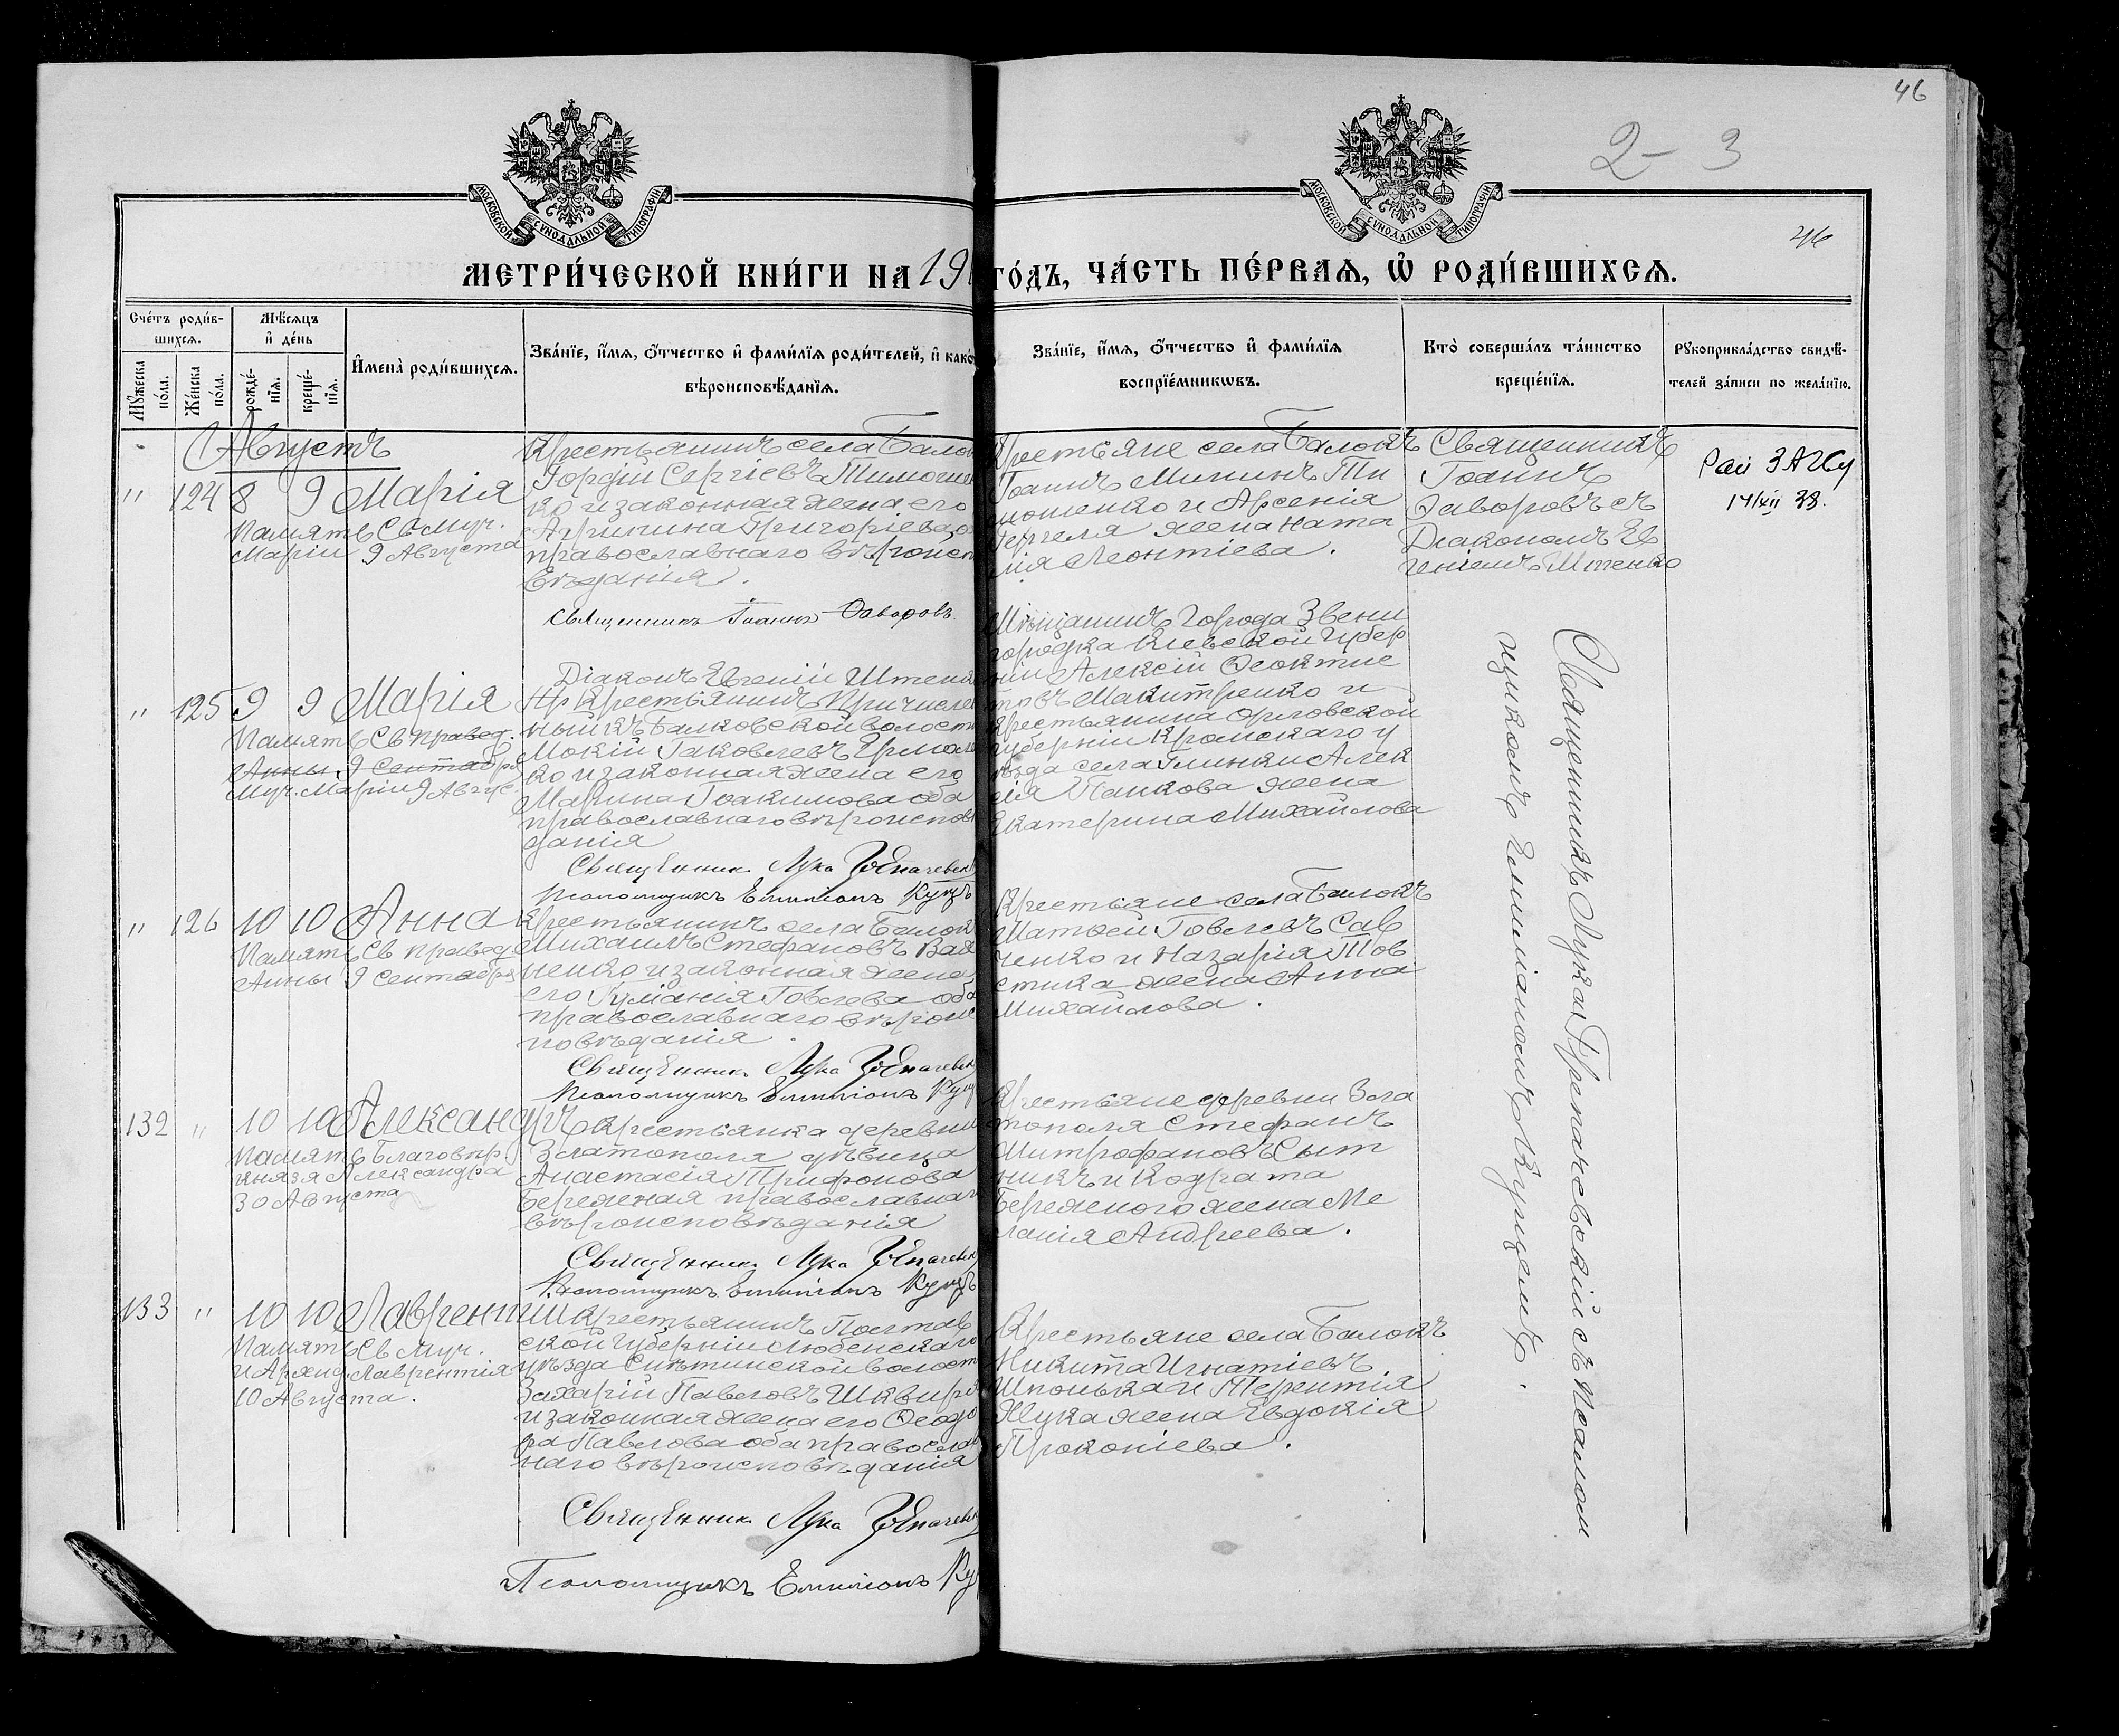 46
2 – 3
46
МОСКОВСКОЙ СУНОДАЛЬНОЙ ТИПОГРАФІИ
МОСКОВСКОЙ СУНОДАЛЬНОЙ ТИПОГРАФІИ
МЕТРИ́ЧЕСКОЙ КНИ́ГИ НА 19
ГО́ДЪ, ЧА́СТЬ ПЕ́РВАѦ, Ѡ҆ РОДИ́ВШИХСѦ.
Сче́тъ роди́в-
шихсѧ.
Мѣ́сѧцъ
и҆ де́нь
Мꙋ́жеска по́ла.
Же́нска по́ла.
рожде́-нїѧ.
креще́-нїѧ.
И҆мена̀ роди́вшихсѧ.
Зва́нїе, и҆́мѧ, о҆́тчество и҆ фами́лїѧ роди́телей, и҆ како́
вѣроисповѣ́данїѧ.
Зва́нїе, и҆́мѧ, о҆́тчество и҆ фами́лїѧ
воспрїе́мникѡвъ.
Кто̀ соверша́лъ та́инство
креще́нїѧ.
Рꙋкоприкла́дство свидѣ́-
телей за́писи по жела́нїю.
Августъ
" 124 8 9 Марія
Память Св Муч.
Маріи 9 Августа
Крестьянинъ села Балок
Гордій Сергіевъ Тимошен
ко и законная жена его
Агрипина Григоріева, о
православнаго вѣроисп
вѣданія.
Священникъ Іоаннъ Заворовъ.
Діаконъ Евгеній Штен
Крестьяне села Балокъ
Іоаннъ Мининъ Ти
мошенко и Арсенія
Гергеля жена Ната
лія Леонтіева.
Священникъ
Іоаннъ
Заворовъ съ
Діакономъ Ев
геніемъ Штенко
Рай ЗАГСу
14/XII 38.
" 125 9 9 Марія
Память Св правед.
Анны 9 Сентября
Муч. Маріи 9 Авгус.
Крестьянинъ Причислен
ный къ Балковской волост
Мокій Іаковлевъ Ермоле
ко и законная жена его
Марина Іоакимова оба
православнаго вѣроисповѣ
данія
Священникъ Лука
Псаломщикъ Емиліанъ Куцъ
Мѣщанинъ города Звени
городка Кіевской губер
ніи Алексій Ѳеоктис
товъ Макитренко и
крестьянина Орловской
губерніи Кромскаго у
ѣзда села Глинки Алек
сія Панкова жена
Екатерина Михайлова
" 126 10 10 Анна
Память Св правед
Анны 9 Сентября
Крестьянинъ села Балок
Михаилъ Стефановъ Важ
ненко и законная жена
его Іуліанія Іовлева оба
православнаго вѣроис
повѣданія.
Священникъ Лука
Псаломщикъ Емиліанъ Куц
Крестьяне села Балокъ
Матѳей Іовлевъ Сав
ченко и Назарія Тов
стика жена Анна
Михайлова.
132 " 10 10 Александръ
Память Благовѣр.
князя Александра
30 Августа
Крестьянка деревни
Златополя дѣвица
Анастасія Трифонова
Бережная православнаг
вѣроисповѣданія
Священникъ Лука
Псаломщикъ Емиліанъ Куцъ
Крестьяне деревни Зла
тополя Стефанъ
Митрофановъ Сыт
никъ и Кодрата
Бережного жена Ме
ланія Андреева.
133 " 10 10 Лаврентій
Память Св Муч.
и Архид. Лаврентія
10 Августа.
Крестьянинъ Полтав
ской губерніи Любенскаго
уѣзда Снѣтинской волост
Захарій Павловъ Шквиря
и законная жена его Ѳеодо
ра Павлова оба правосла
наго вѣроисповѣданія
Священникъ Лука
Псаломщикъ Емиліанъ Ку
Крестьяне села Балокъ
Никита Игнатіевъ
Шпонька и Терентія
Жука жена Евдокія
Прокопіева.
Священникъ Лука Грепачевскій съ Псалом
щикомъ Емиліаномъ Куцемъ.